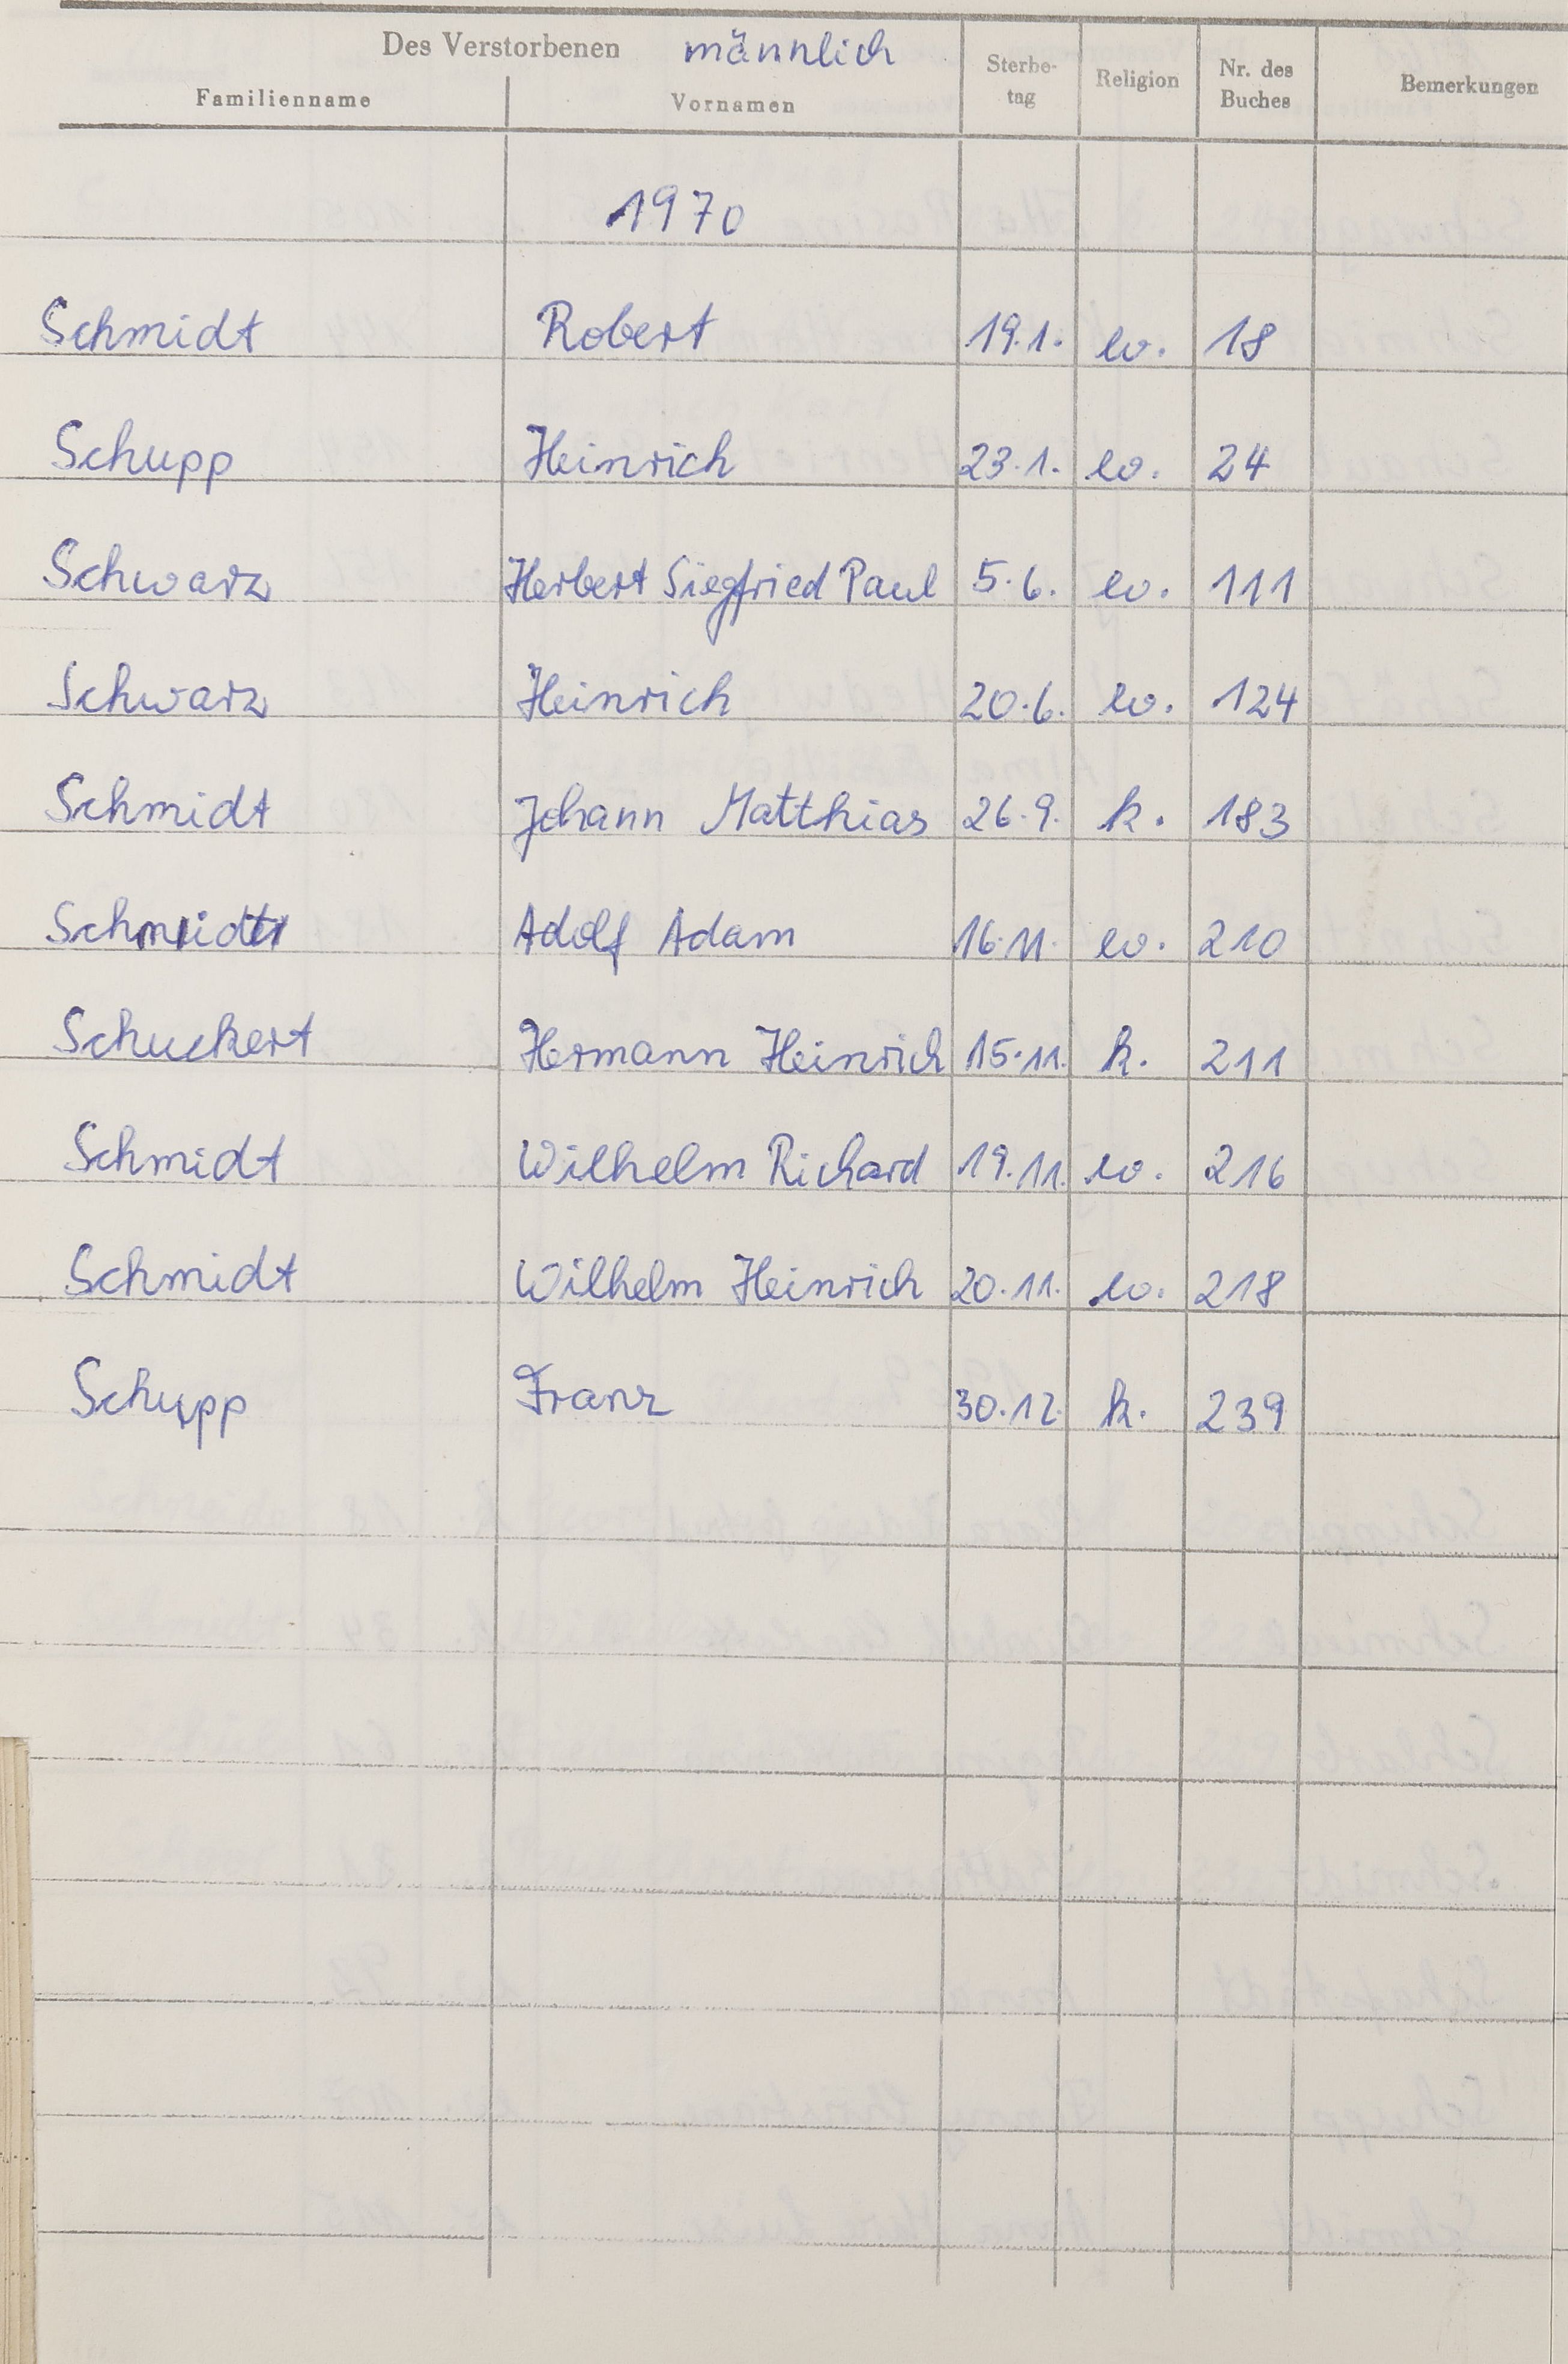 Des Verstorbenen männlich
Familienname Vornamen Sterbe-tag Religion Nr. des Buches Bemerkungen
1970
Schmidt Robert 19.1. ev. 18
Schupp Heinrich 23.1. ev. 24
Schwarz Herbert Siegfried Paul 5.6. ev. 111
Schwarz Heinrich 20.6. ev. 124
Schmidt Johann Matthias 26.9. k. 183
Adolf Adam 16.11. ev. 210
Schuckert Hermann Heinrich 15.11. k. 211
Schmidt Wilhelm Richard 19.11. ev. 216
Schmidt Wilhelm Heinrich 20.11. ev. 218
Schupp Franz 30.12. k. 239